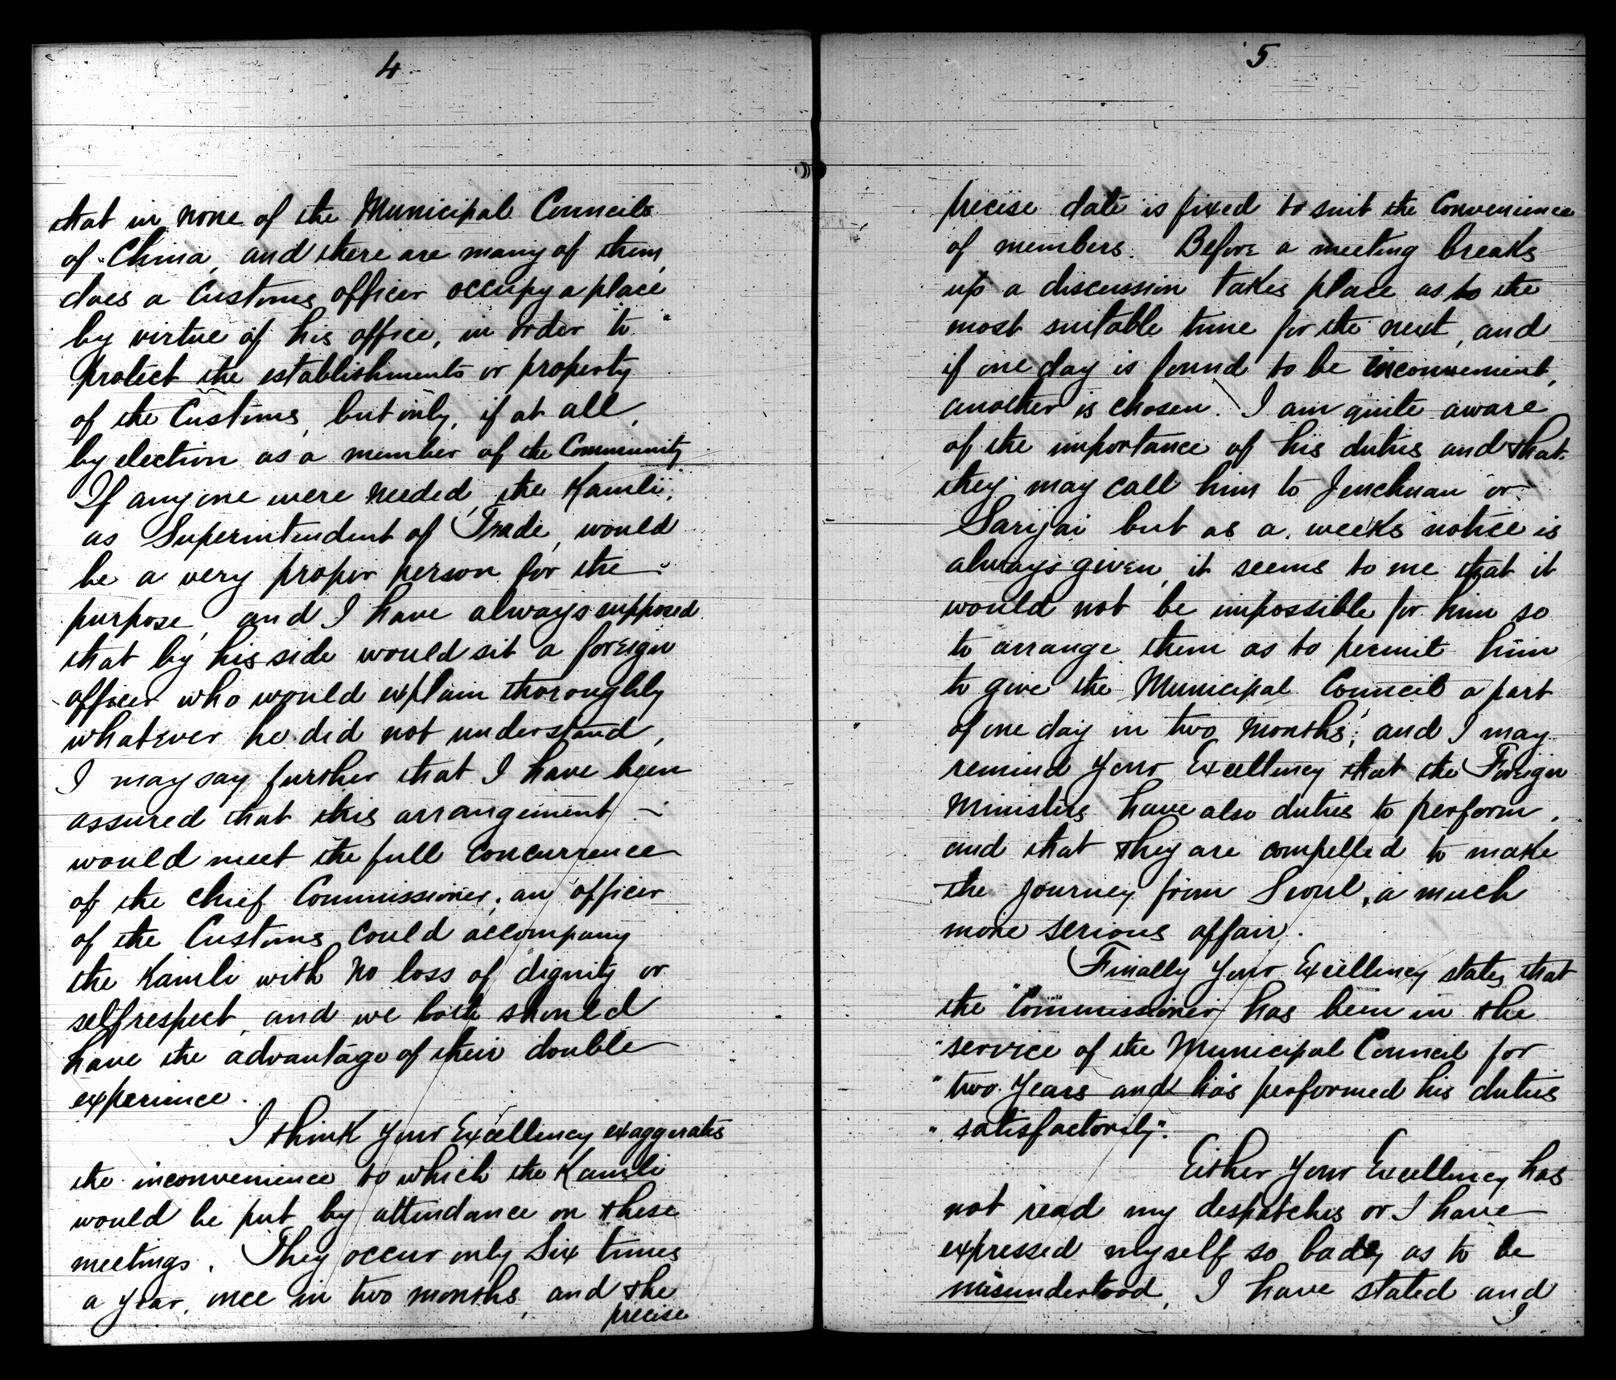 4
that in none of the Municipal Councils
of China, and there are many of them,
does a Customs officer occupy a place
by virtue of his office, in order to
protect the establishments or property
of the Customs, but only, if at all,
by election as a member of the Community
If any one were needed, the Kamli,
as Superintendent of Trade, would
be a very proper person for the
purpose, and I have always supposed
that by his side would sit a foreign
officer who would explain thoroughly
whatever he did not understand,
I may say further that I have been
assured that this arrangement
would meet the full concurrence
of the chief Commissioner; an officer
of the Customs could accompany
the Kamli with no loss of dignity or
selfrespect, and we both should
have the advantage of their double
experience.
I think Your Excellency exaggerates
the inconvenience to which the Kamli
would be put by attendance on these
meetings. They occur only Six times
a year, once in two months, and the
precise
5
precise date is fixed to suit the Convenience
of members. Before a meeting breaks
up a discussion takes place as to the
most suitable time for the next, and
if one day is found to be inconvenient,
another is chosen. I am quite aware
of the importance of his duties and that
they may call him to Jenchuan or
Sarijai but as a weeks notice is
always given, it seems to me that it
would not be impossible for him so
to arrange them as to permit him
to give the Municipal Council a part
of one day in two months; and I may
remind Your Excellency that the Foreign
Ministers have also duties to perform,
and that they are compelled to make
the journey from Seoul, a much
more serious affair.
Finally Your Excellency states that
the "Commissioner has been in the
"service of the Municipal Council for
"two Years and has performed his duties
"satisfactorily".
Either Your Excellency has
not read my despatches or I have
expressed myself so badly as to be
misunderstood, I have stated and
I